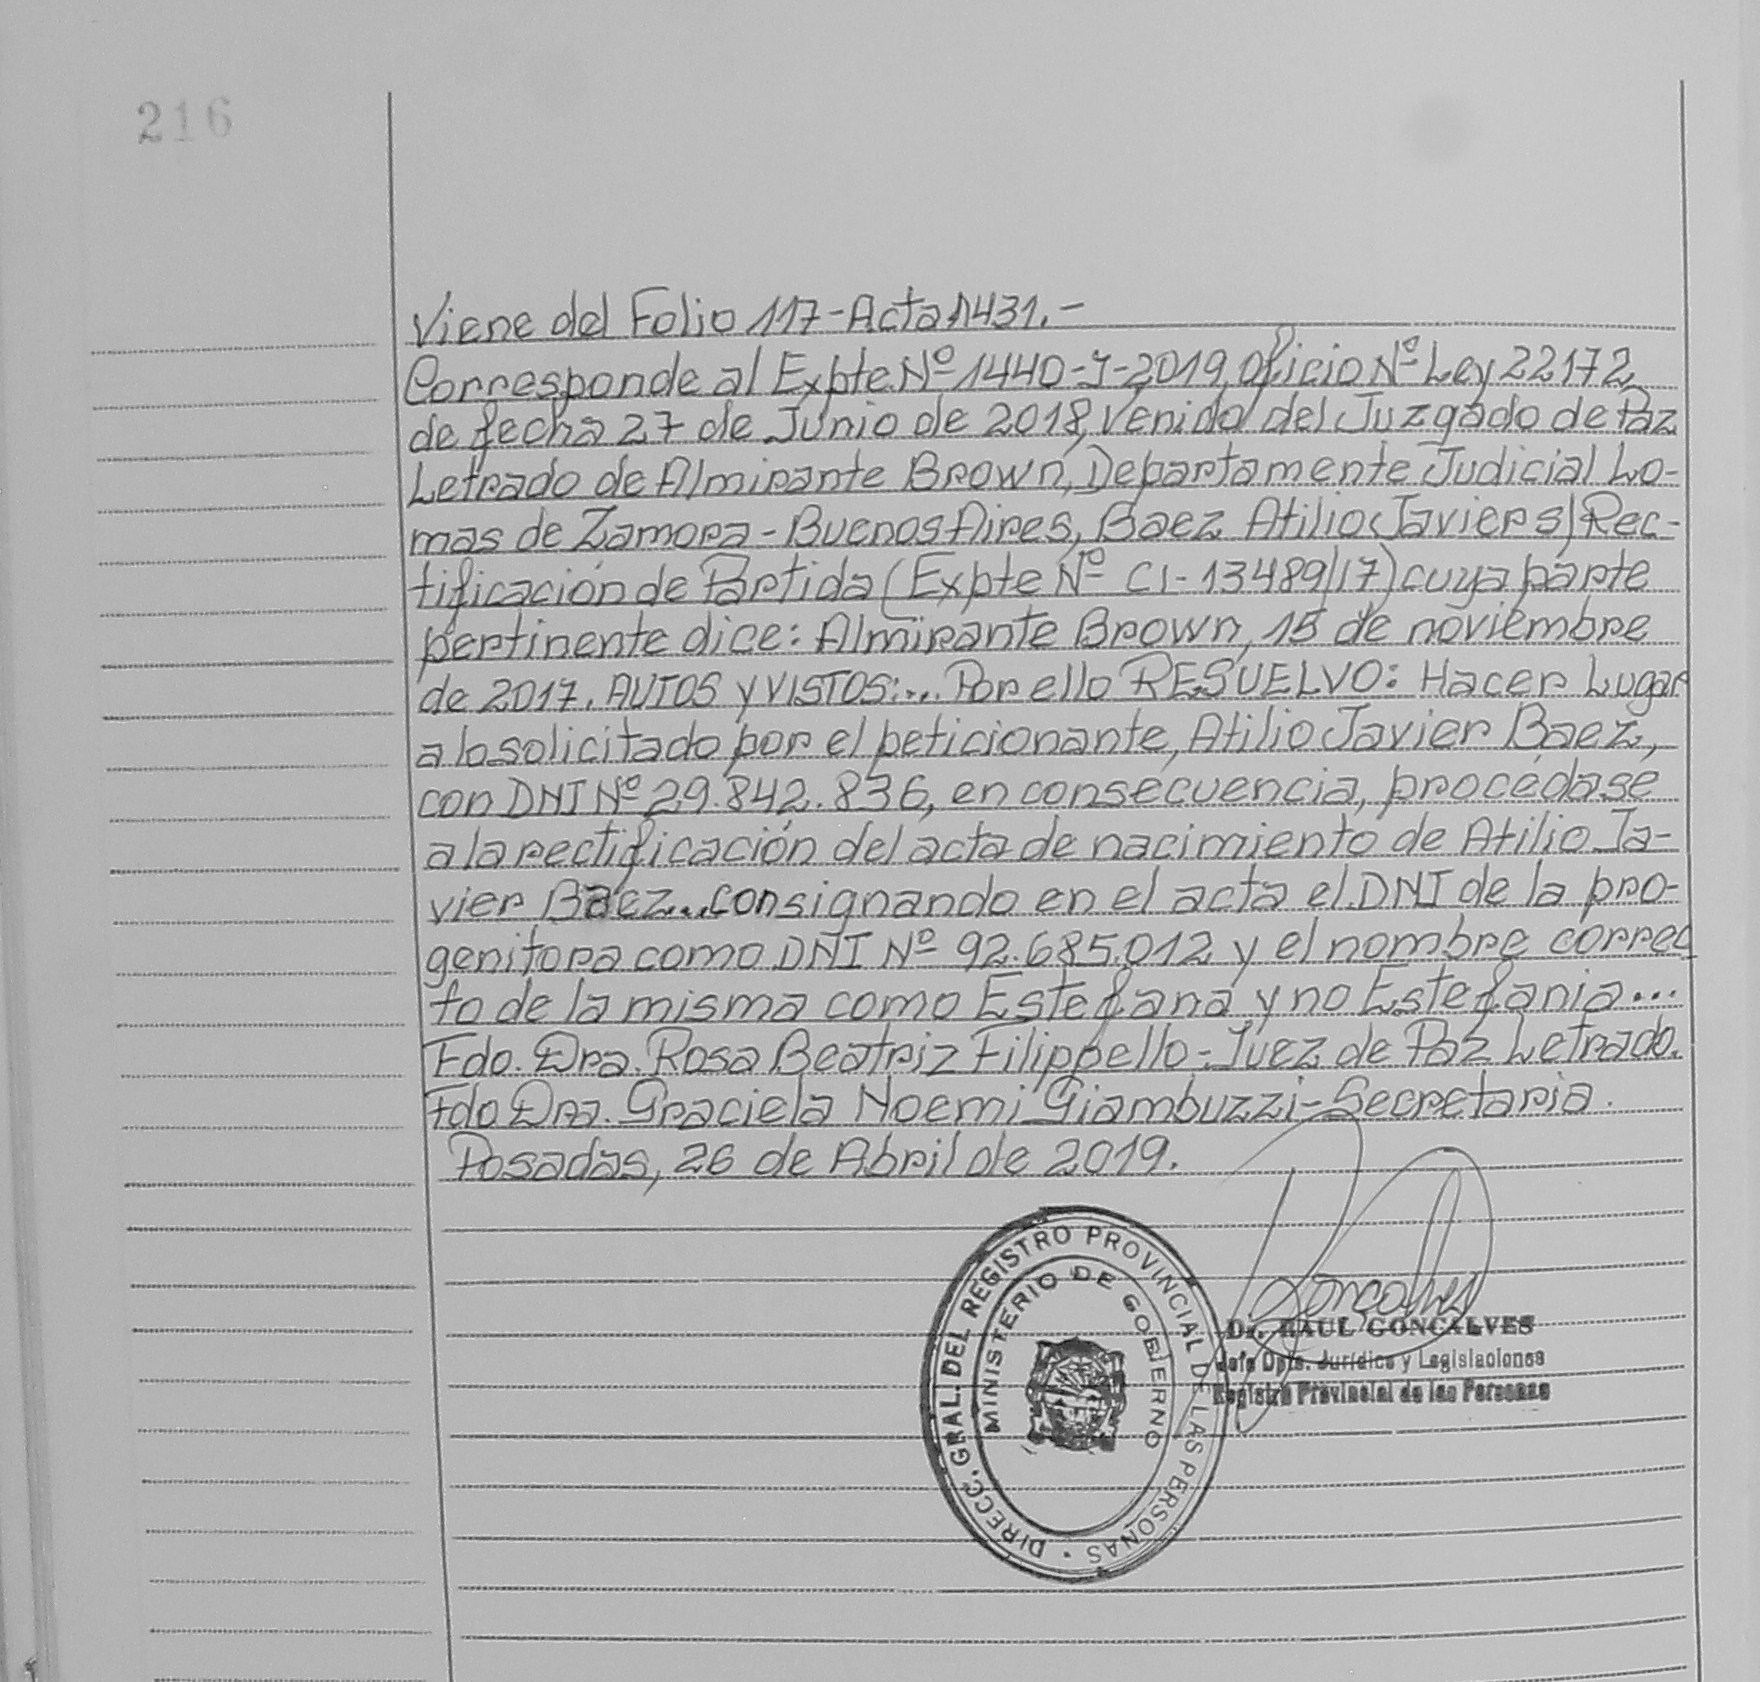 216
Viene del Folio 117-Acta 1431.-
Corresponde al Expte Nº 1440-J-2019, Oficio Nº Ley 22172,
de fecha 27 de Junio de 2018, venido del Juzgado de Paz
Letrado de Almirante Brown, Departamente Judicial Lo-
mas de Zamora - Buenos Aires, Baez Atilio Javier s/ Rec-
tificación de Partida (Expte Nº CI-13489/17) cuya parte
pertinente dice: Almirante Brown, 15 de noviembre
de 2017. AUTOS y VISTOS:... Por ello RESUELVO: Hacer Lugar
a lo solicitado por el peticionante, Atilio Javier Baez,
con DNI Nº 29.842.836, en consecuencia, procédase
a la rectificación del acta de nacimiento de Atilio Ja-
vier Baez... consignando en el acta el DNI de la pro-
genitora como DNI Nº 92.685.012 y el nombre correc
to de la misma como Estefana y no Estefania...
Fdo. Dra. Rosa Beatriz Filippello - Juez de Paz Letrado.
Fdo Dra. Graciela Noemi Giambuzzi - Secretaria.
Posadas, 26 de Abril de 2019.
DIRECC. GRAL. DEL REGISTRO PROVINCIAL DE LAS PERSONAS
MINISTERIO DE GOBIERNO
Goncalves
Dr. RAUL GONCALVES
Jefe Dpto. Jurídico y Legislaciones
Registro Provincial de las Personas